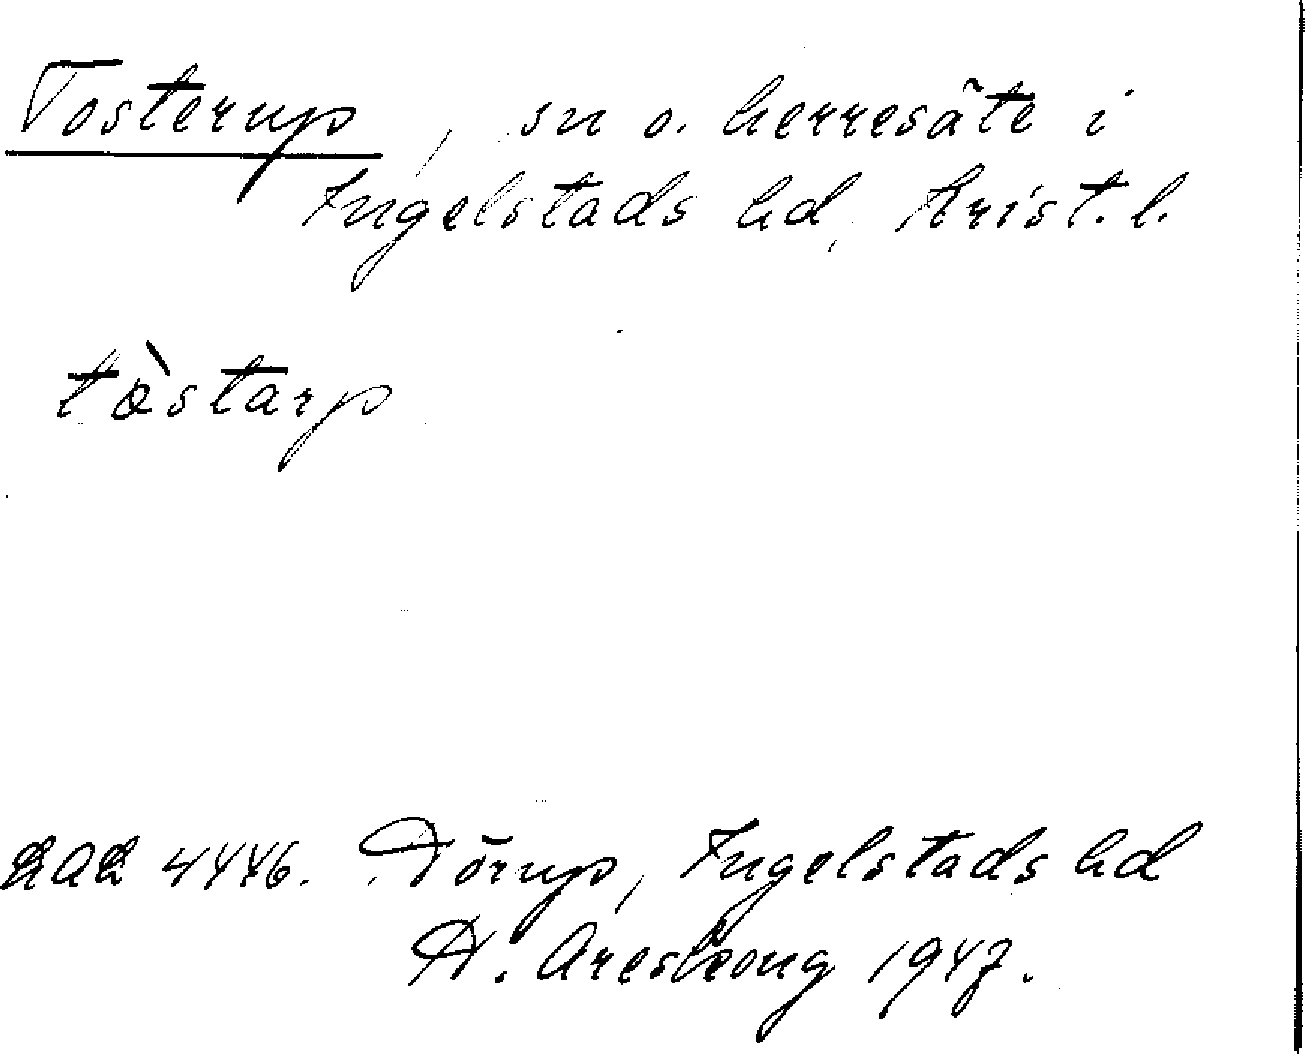 Tosterup, sn o. herresäte i
Ingelstads hd, Krist. l.
tòstarp
LAL 4446. Törup, Ingelstads hd
A. Areskoug 1947.